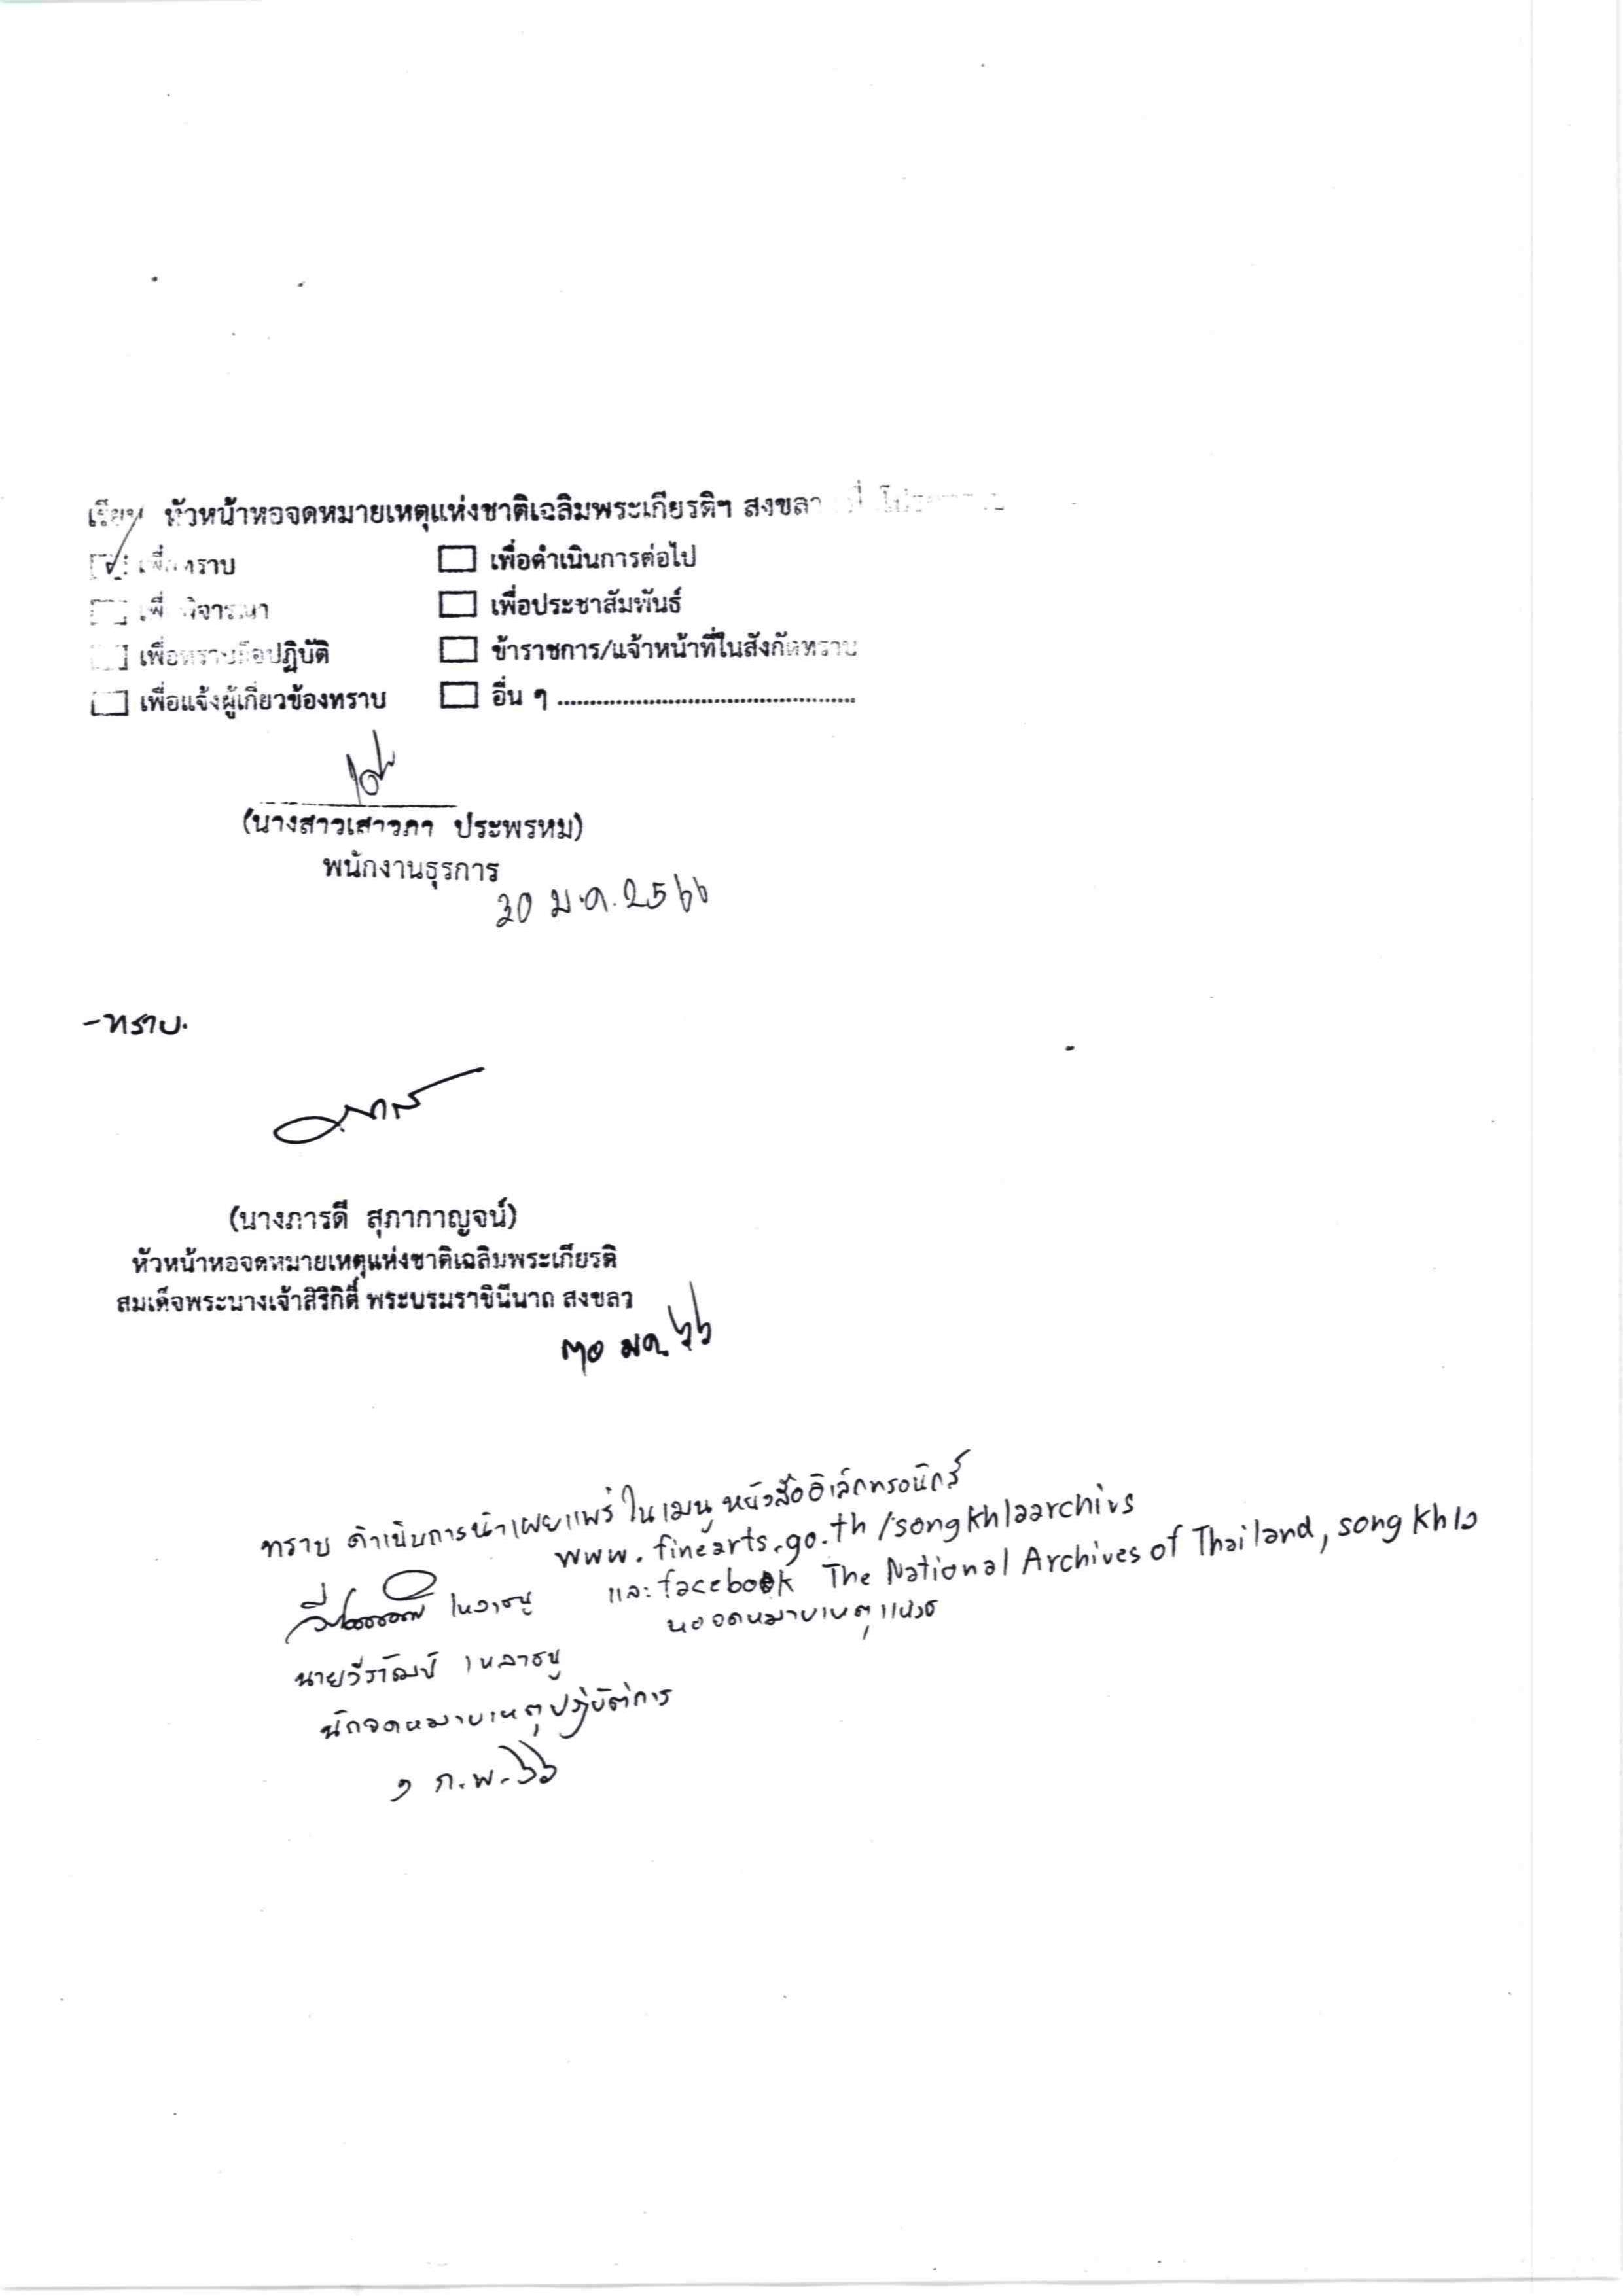 เรียน หัวหน้าหอจดหมายเหตุแห่งชาติเฉลิมพระเกียรติฯ สงขลา
เพื่อทราบ เพื่อดำเนินการต่อไป
เพื่อพิจารณา เพื่อประชาสัมพันธ์
เพื่อทราบถือปฏิบัติ ข้าราชการ/เจ้าหน้าที่ในสังกัดทราบ
เพื่อแจ้งผู้เกี่ยวข้องทราบ อื่น ๆ ..............................................
(นางสาวเสาวภา ประพรหม)
พนักงานธุรการ
30 ม.ค. 2566
-ทราบ.
(นางภารดี สุภากาญจน์)
หัวหน้าหอจดหมายเหตุแห่งชาติเฉลิมพระเกียรติ
สมเด็จพระนางเจ้าสิริกิติ์ พระบรมราชินีนาถ สงขลา
๓๐ มค. ๖๖
ทราบ ดำเนินการนำเผยแพร่ ในเมนู หนังสืออิเล็กทรอนิกส์
www.finearts.go.th/songkhlaarchivs
และ facebook The National Archives of Thailand, songkhla
หอจดหมายเหตุแห่งช
เหลาธนู
นายวีรวัฒน์ เหลาธนู
นักจดหมายเหตุปฏิบัติการ
๑ ก.พ. ๖๖